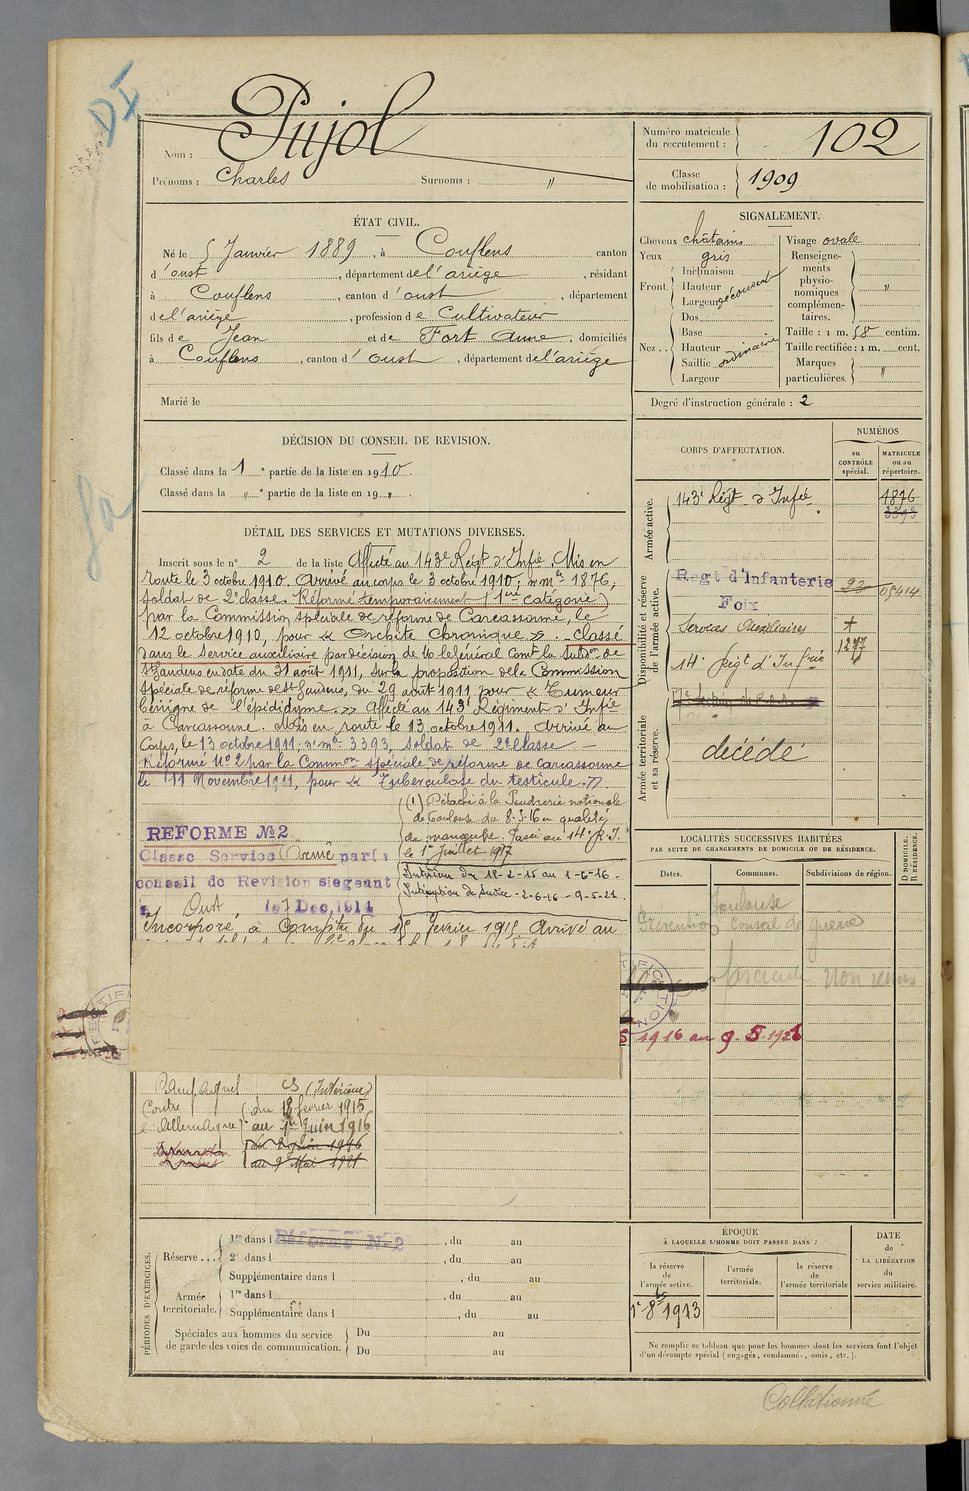 DI
Pujol
Nom :
Prénoms : Charles Surnoms : "
Numéro matricule du recrutement : 102
Classe de mobilisation : 1909
ÉTAT CIVIL.
Né le 5 Janvier 1889, à Couflens canton
d'oust, département de l'ariège, résidant
à Couflens, canton d'oust, département
de l'ariège, profession de Cultivateur
fils de Jean et de Fort Anne, domiciliés
à Couflens, canton d'oust, département de l'ariège
Marié le
SIGNALEMENT.
Cheveux châtains
Yeux gris
Front Inclinaison
Hauteur
Largeur découvert
Nez .. Dos
Base
Hauteur
Saillie ordinaire
Largeur
Visage ovale
Renseignements physionomiques complémentaires. "
Taille : 1 m. 58 centim.
Taille rectifiée : 1 m. cent.
Marques particulières. "
Degré d'instruction générale : 2
DÉCISION DU CONSEIL DE REVISION.
Classé dans la 1e partie de la liste en 1910.
Classé dans la " e partie de la liste en 19 ".
DÉTAIL DES SERVICES ET MUTATIONS DIVERSES.
Inscrit sous le n° 2 de la liste Affecté au 143e Régt d'Infie Mis en
route le 3 octobre 1910. Arrivé au corps le 3 octobre 1910; n° mle 1876,
soldat de 2e classe. Réformé temporairement (1ere catégorie)
par la Commission spéciale de réforme de Carcassonne, le
12 octobre 1910, pour « Orchite Chronique ». Classé
dans le Service auxiliaire par décision de M le Général Comt la Subdon de
St Gaudens en date du 31 août 1911, sur la proposition de la Commission
spéciale de réforme de St Gaudens, du 29 août 1911 pour « Tumeur
bénigne de l'épididyme. » Affecté au 143e Régiment d'Infie
à Carcassonne. Mis en route le 13 octobre 1911. Arrivé au
Corps, le 13 octobre 1911; n° mle 3393, soldat de 2e classe –
Réformé N° 2 par la Common spéciale de réforme de Carcassonne
le 11 Novembre 1911, pour « Tuberculose du testicule. »
(1) Détaché à la Poudrerie nationale
de Toulouse du 8-3-16 en qualité
de manœuvre. Passé au 14e R.I.
le 1er Juillet 1917
Intérieur du 18-2-15 au 1-6-16 -
Interruption de service - 2-6-16 - 9-5-21.
REFORME No 2
Classe Service Armé par le
conseil de Revision siegeant
à Oust, le 7 Dec, 1914
Incorporé à Compter du 18 février 1915 Arrivé au
Contre
l'Allemagne
(Intérieur)
du 18 février 1915
au 1er Juin 1916
du 2 Juin 1916
au 9 Mai 1921
CORPS D'AFFECTATION.
NUMÉROS
au CONTRÔLE spécial.
MATRICULE ou au répertoire.
Armée active.
143e Régt d'Infie 1876
3393
Disponibilité et réserve de l'armée active.
Regt d'Infanterie 23 05414
Foix
Services Auxiliaires
14e Régt d'Infrie 1277
Armée territoriale et sa réserve.
décédé
LOCALITÉS SUCCESSIVES HABITÉES
PAR SUITE DE CHANGEMENTS DE DOMICILE OU DE RÉSIDENCE.
Dates. Communes. Subdivisions de région. D DOMICILE. R RÉSIDENCE.
Toulouse
Prévention Conseil de guerre
fascicule non remis
1916 au 9.5.1921
PÉRIODES D'EXERCICES.
Réserve ... 1re dans l Réformé No 2, du au
2e dans l , du au
Supplémentaire dans l , du au
Armée territoriale. 1re dans l , du au
Supplémentaire dans l , du au
Spéciales aux hommes du service de garde des voies de communication. Du au
Du au
ÉPOQUE
À LAQUELLE L'HOMME DOIT PASSER DANS :
la réserve de l'armée active.
l'armée territoriale.
la réserve de l'armée territoriale
DATE de LA LIBÉRATION du service militaire.
1er 8bre 1913
Ne remplir ce tableau que pour les hommes dont les services font l'objet
d'un décompte spécial (engagés, condamnés, omis, etc.).
Collationné